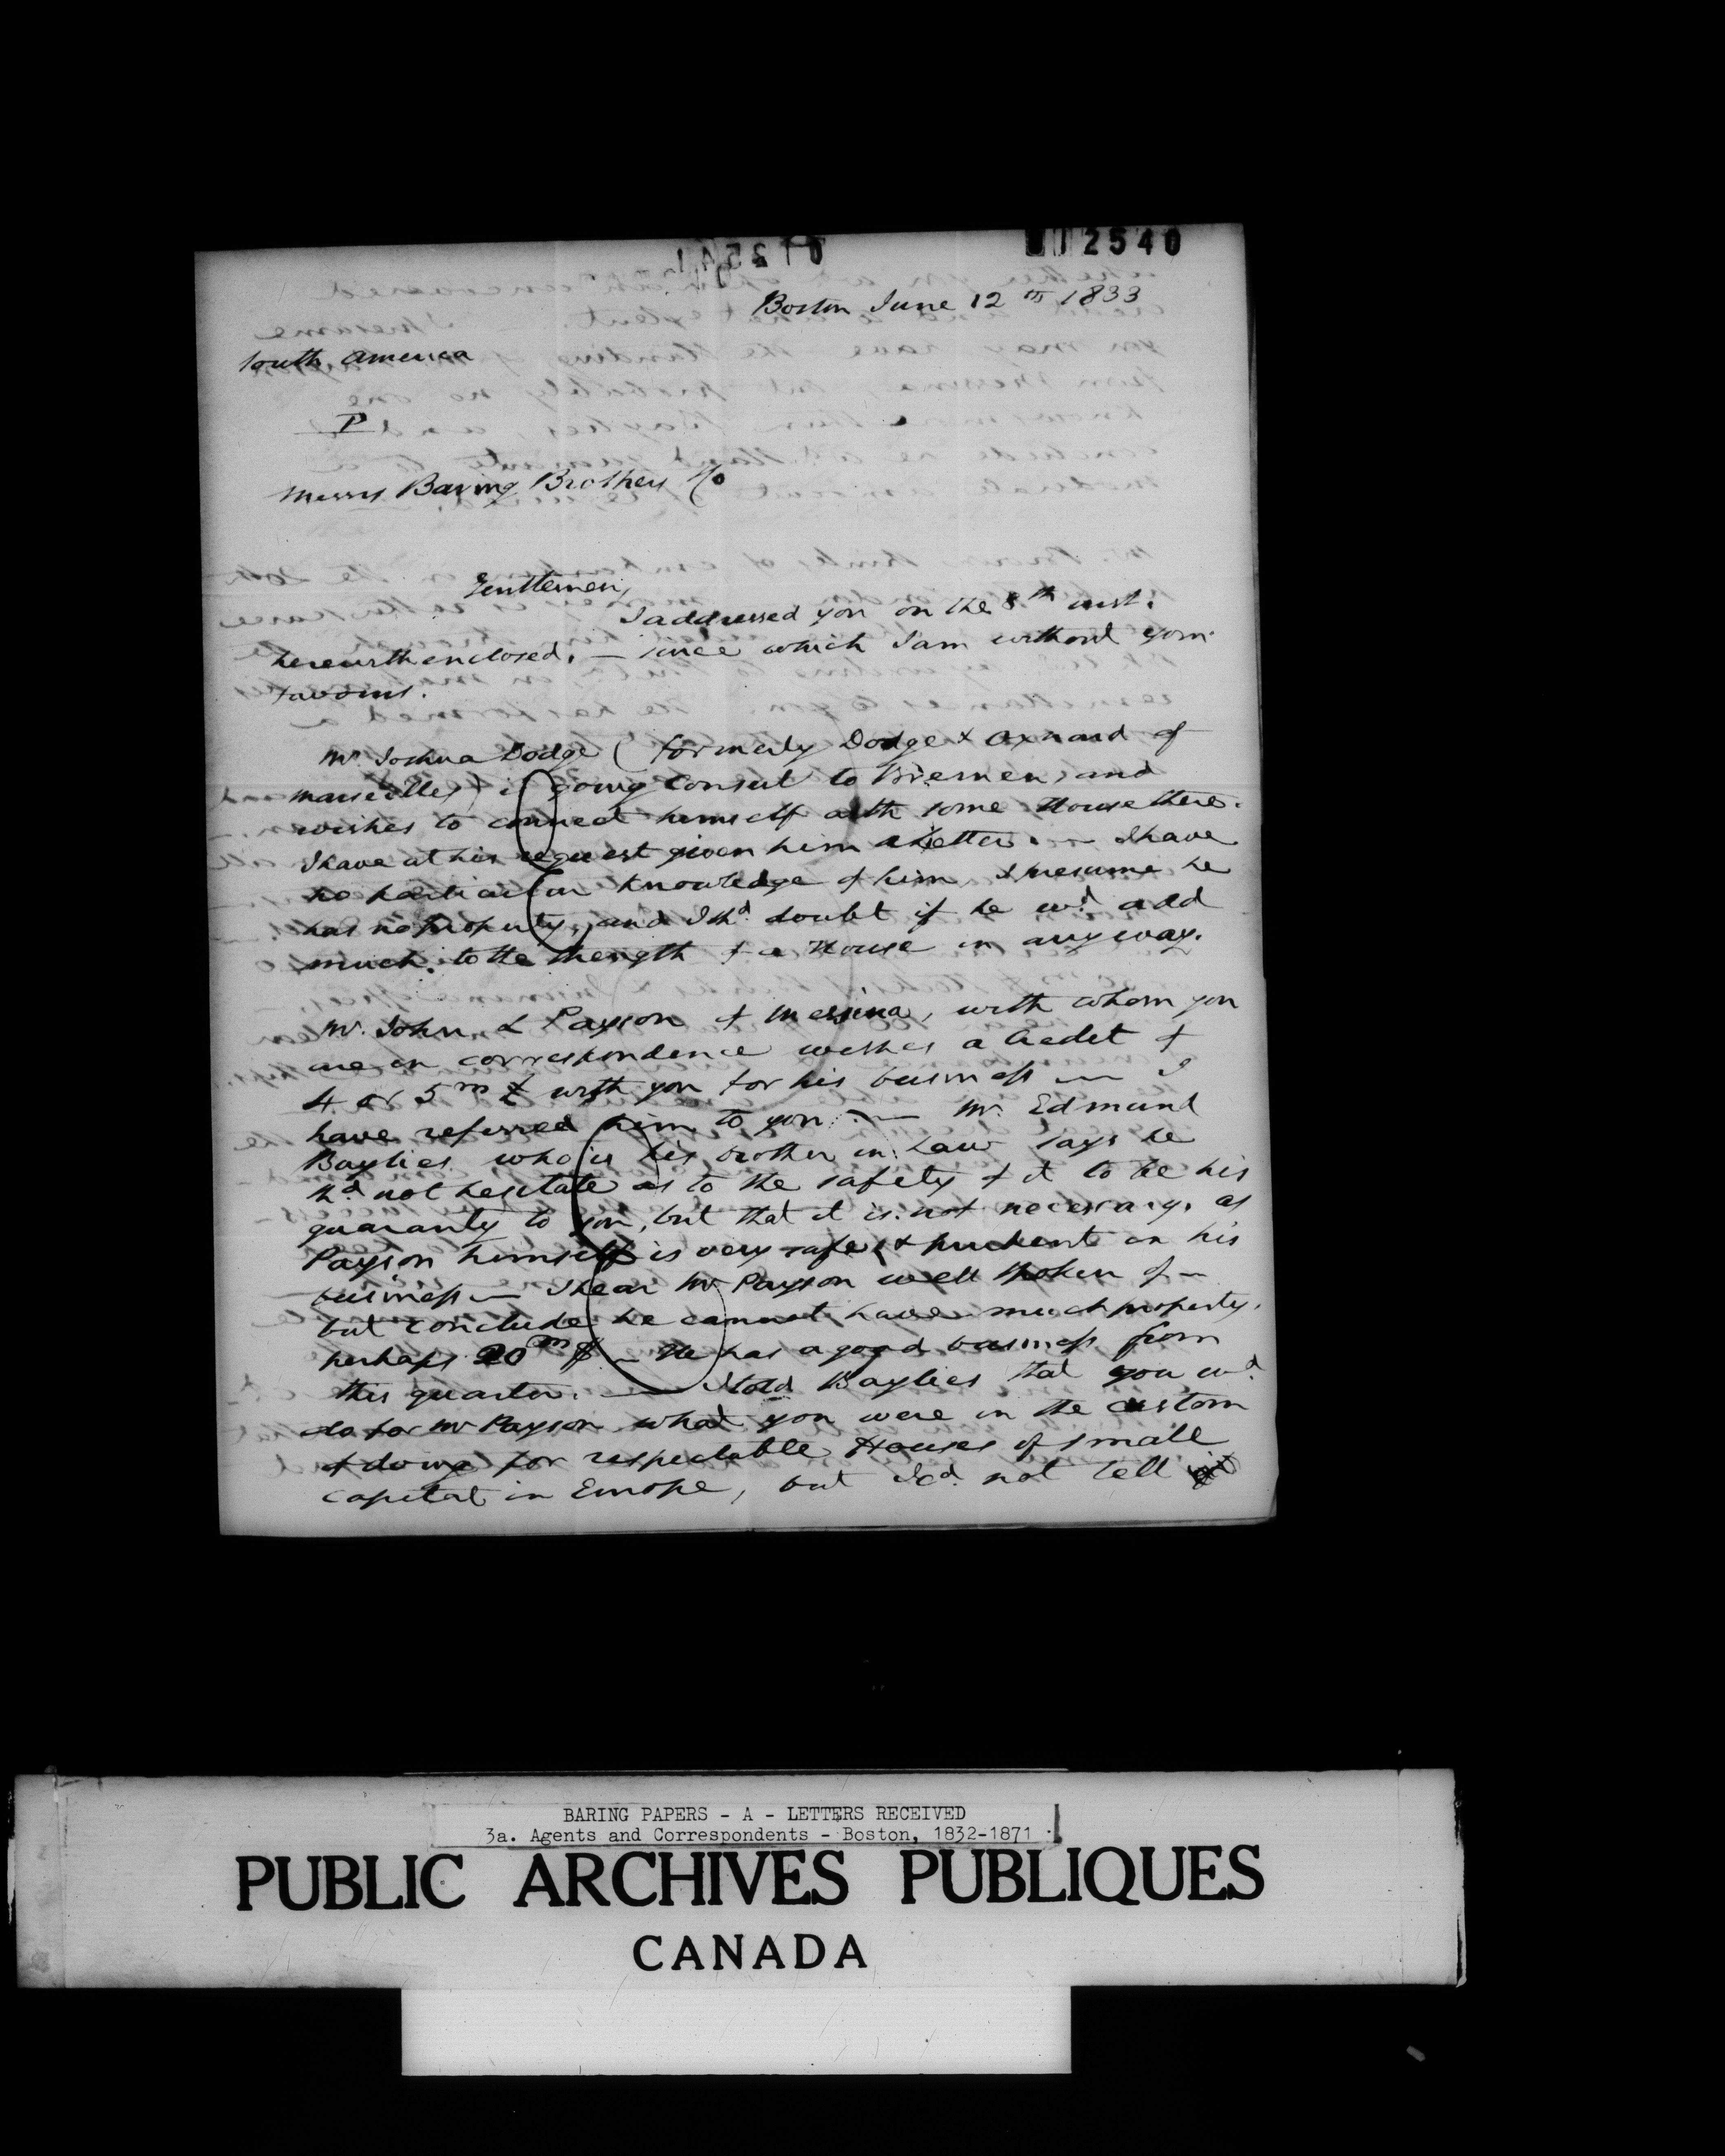 012540
Boston June 12th 1833
South America
P
Messrs Baring Brothers & Co
Gentlemen,
I addressed you on the 8th inst.
herewith enclosed. — since which I am without your
favours.
Mr Joshua Dodge (formerly Dodge & Oxnard of
Marseilles) is going Consul to Bremen, and
wishes to connect himself with some House there.
I have at his request given him a letter. — I have
no particular knowledge of him, I presume he
has no property, and I shd. doubt if he wd. add
much to the strength of a House in any way.
Mr. John L Payson of Messina, with whom you
are in correspondence wishes a Credit of
4 or 5m £ with you for his business — I
have referred him to you. — Mr. Edmund
Baylies who is his brother in Law says he
shd not hesitate as to the safety of it to be his
guaranty to you, but that it is not necessary, as
Payson himself is very safe & prudent in his
business — I hear Mr Payson well spoken of —
but conclude he cannot have much property,
perhaps 20m $ — He has a good business from
this quarter. — I told Baylies that you wd.
do for Mr Payson what you were in the custom
of doing for respectable Houses of small
capital in Europe, but I cd. not tell
BARING PAPERS - A - LETTERS RECEIVED
3a. Agents and Correspondents - Boston, 1832-1871
PUBLIC ARCHIVES PUBLIQUES
CANADA